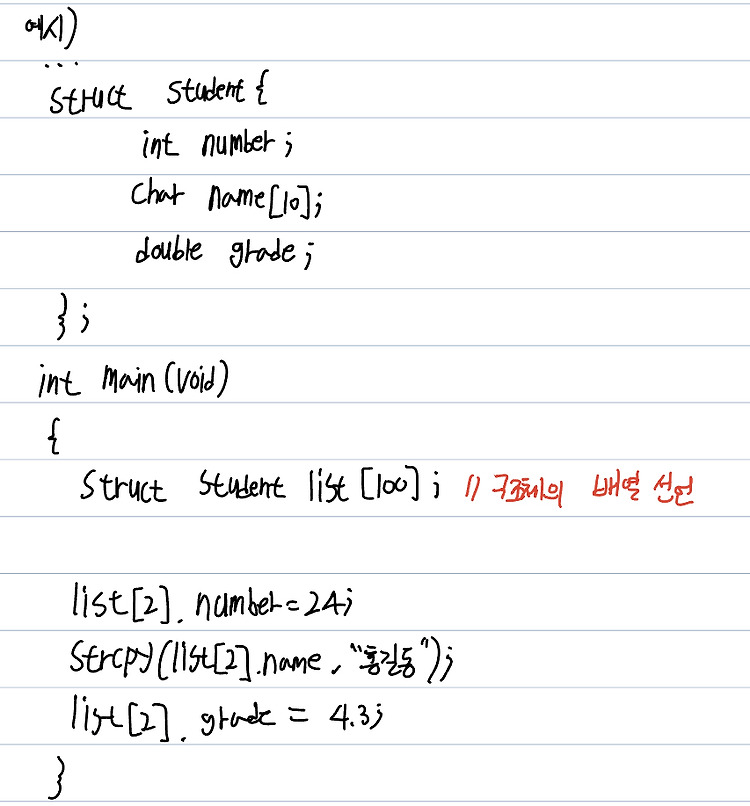 예시)
...
struct student {
int number;
char name[10];
double grade;
};
int main(void)
{
struct student list[100]; // 구조체의 배열 선언
list[2].number=24;
strcpy(list[2].name, "홍길동");
list[2].grade = 4.3;
}